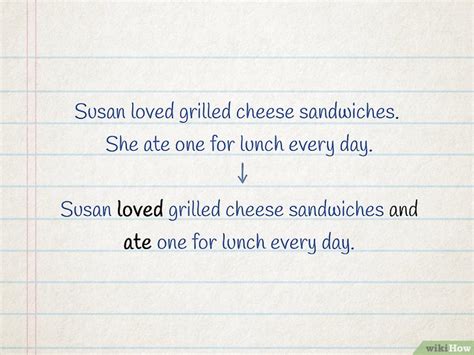 Susan loved grilled cheese sandwiches.
She ate one for lunch every day.
↓
Susan loved grilled cheese sandwiches and
ate one for lunch every day.
wikiHow